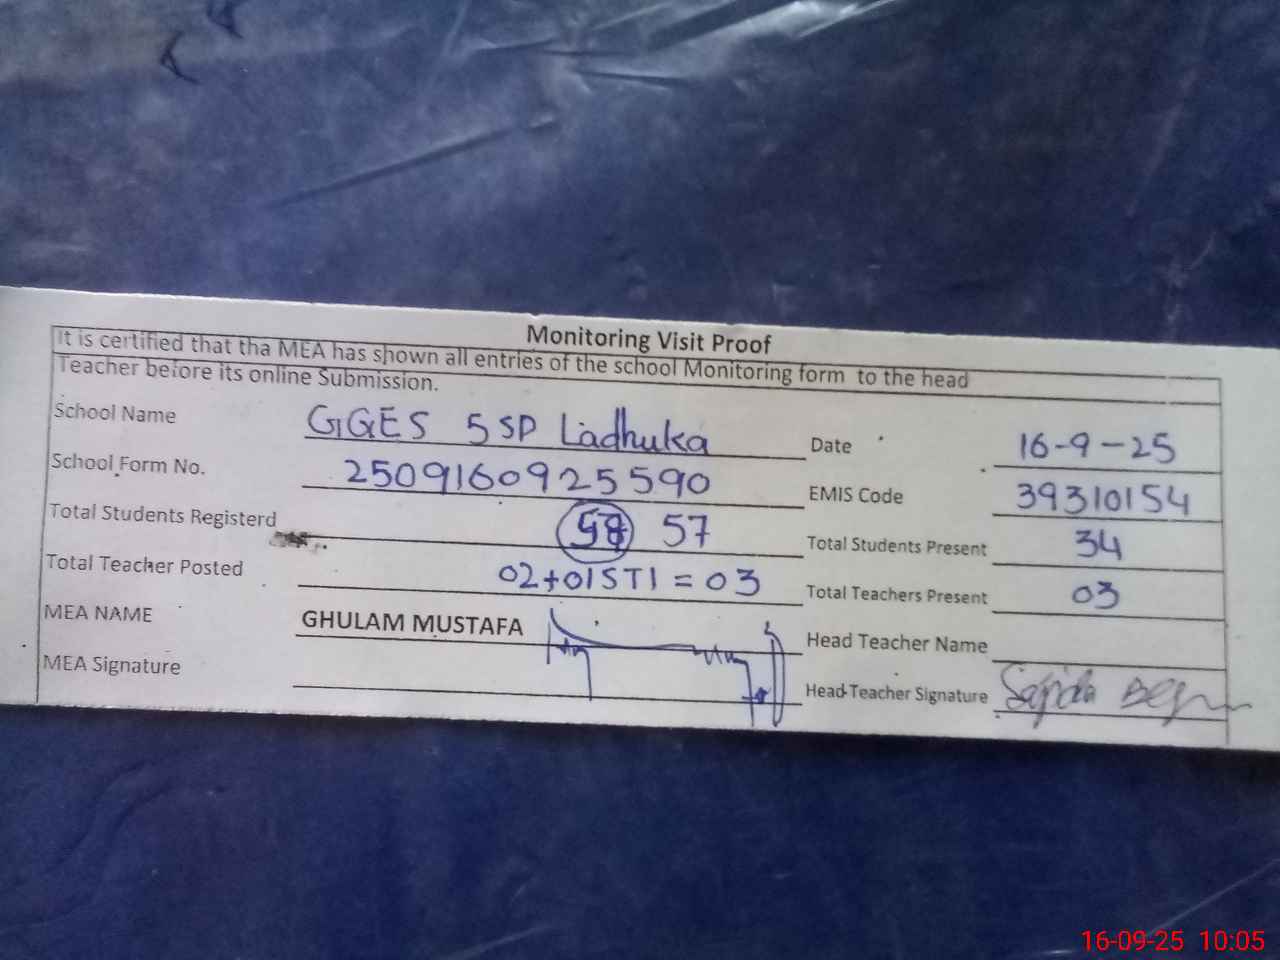 Monitoring Visit Proof
It is certified that tha MEA has shown all entries of the school Monitoring form to the head
Teacher before its online Submission.
School Name GGES 5SP Ladhuka Date 16-9-25
School Form No. 2509160925590 EMIS Code 39310154
Total Students Registerd 57 Total Students Present 34
Total Teacher Posted 02+01STI=03 Total Teachers Present 03
MEA NAME GHULAM MUSTAFA Head Teacher Name
MEA Signature Head Teacher Signature Sajida
16-09-25 10:05